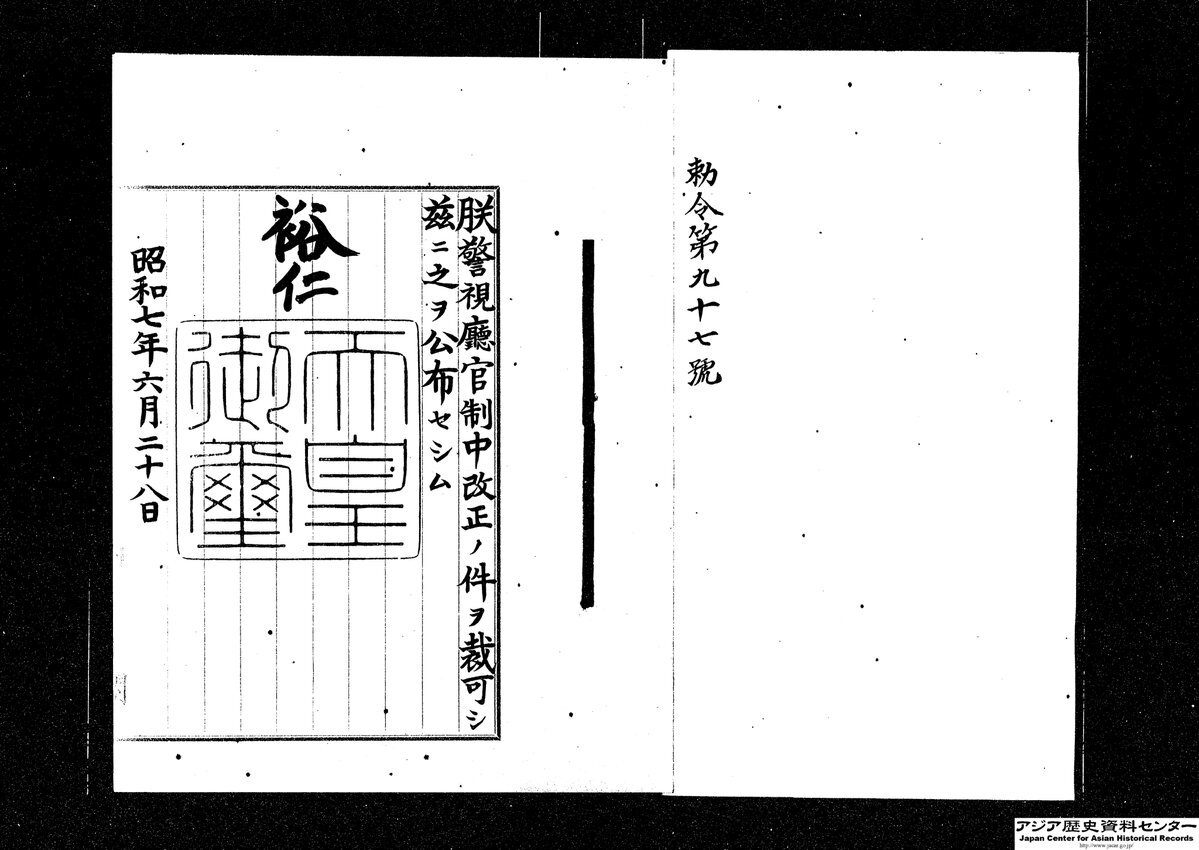 勅令第九十七號
朕警視廳官制中改正ノ件ヲ裁可シ
茲ニ之ヲ公布セシム
裕仁
天皇
御璽
昭和七年六月二十八日
アジア歴史資料センター
Japan Center for Asian Historical Records
http://www.jacar.go.jp/